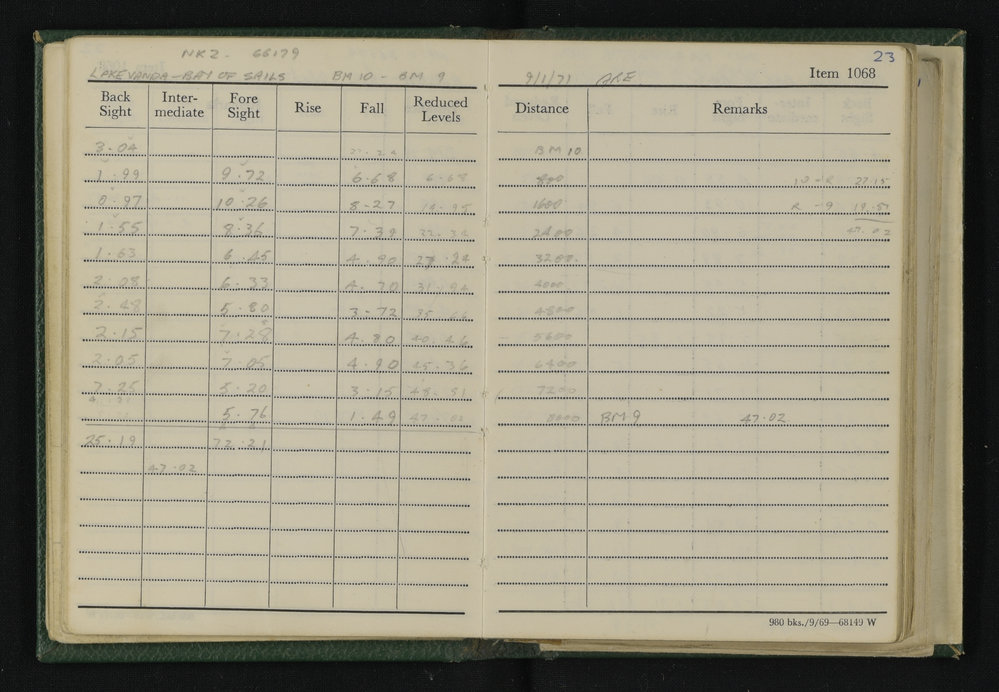 NKZ. 66179
LAKE VANDA - BAY OF SAILS BM 10 - BM 9 9/1/71 23
Item 1068
Back Sight Inter-mediate Fore Sight Rise Fall Reduced Levels Distance Remarks
3.04 BM 10
1.99 9.72 6.68 6.68 800 10 - R 27.15
0.97 10.26 8.27 1600 R - 9
1.55 8.36 7.39 2400 47.02
1.63 6.45 4.90 27.24 3200
2.08 6.33 4.70 31.94 4000
2.48 5.80 3.72 4800
2.15 7.28 4.80 40.46 5600
2.05 7.05 4.90 45.36 6400
5.20 3.15 7200
5.76 1.49 47.02 8000 BM 9 47.02
25.19 72.21
47.02
980 bks./9/69—68149 W